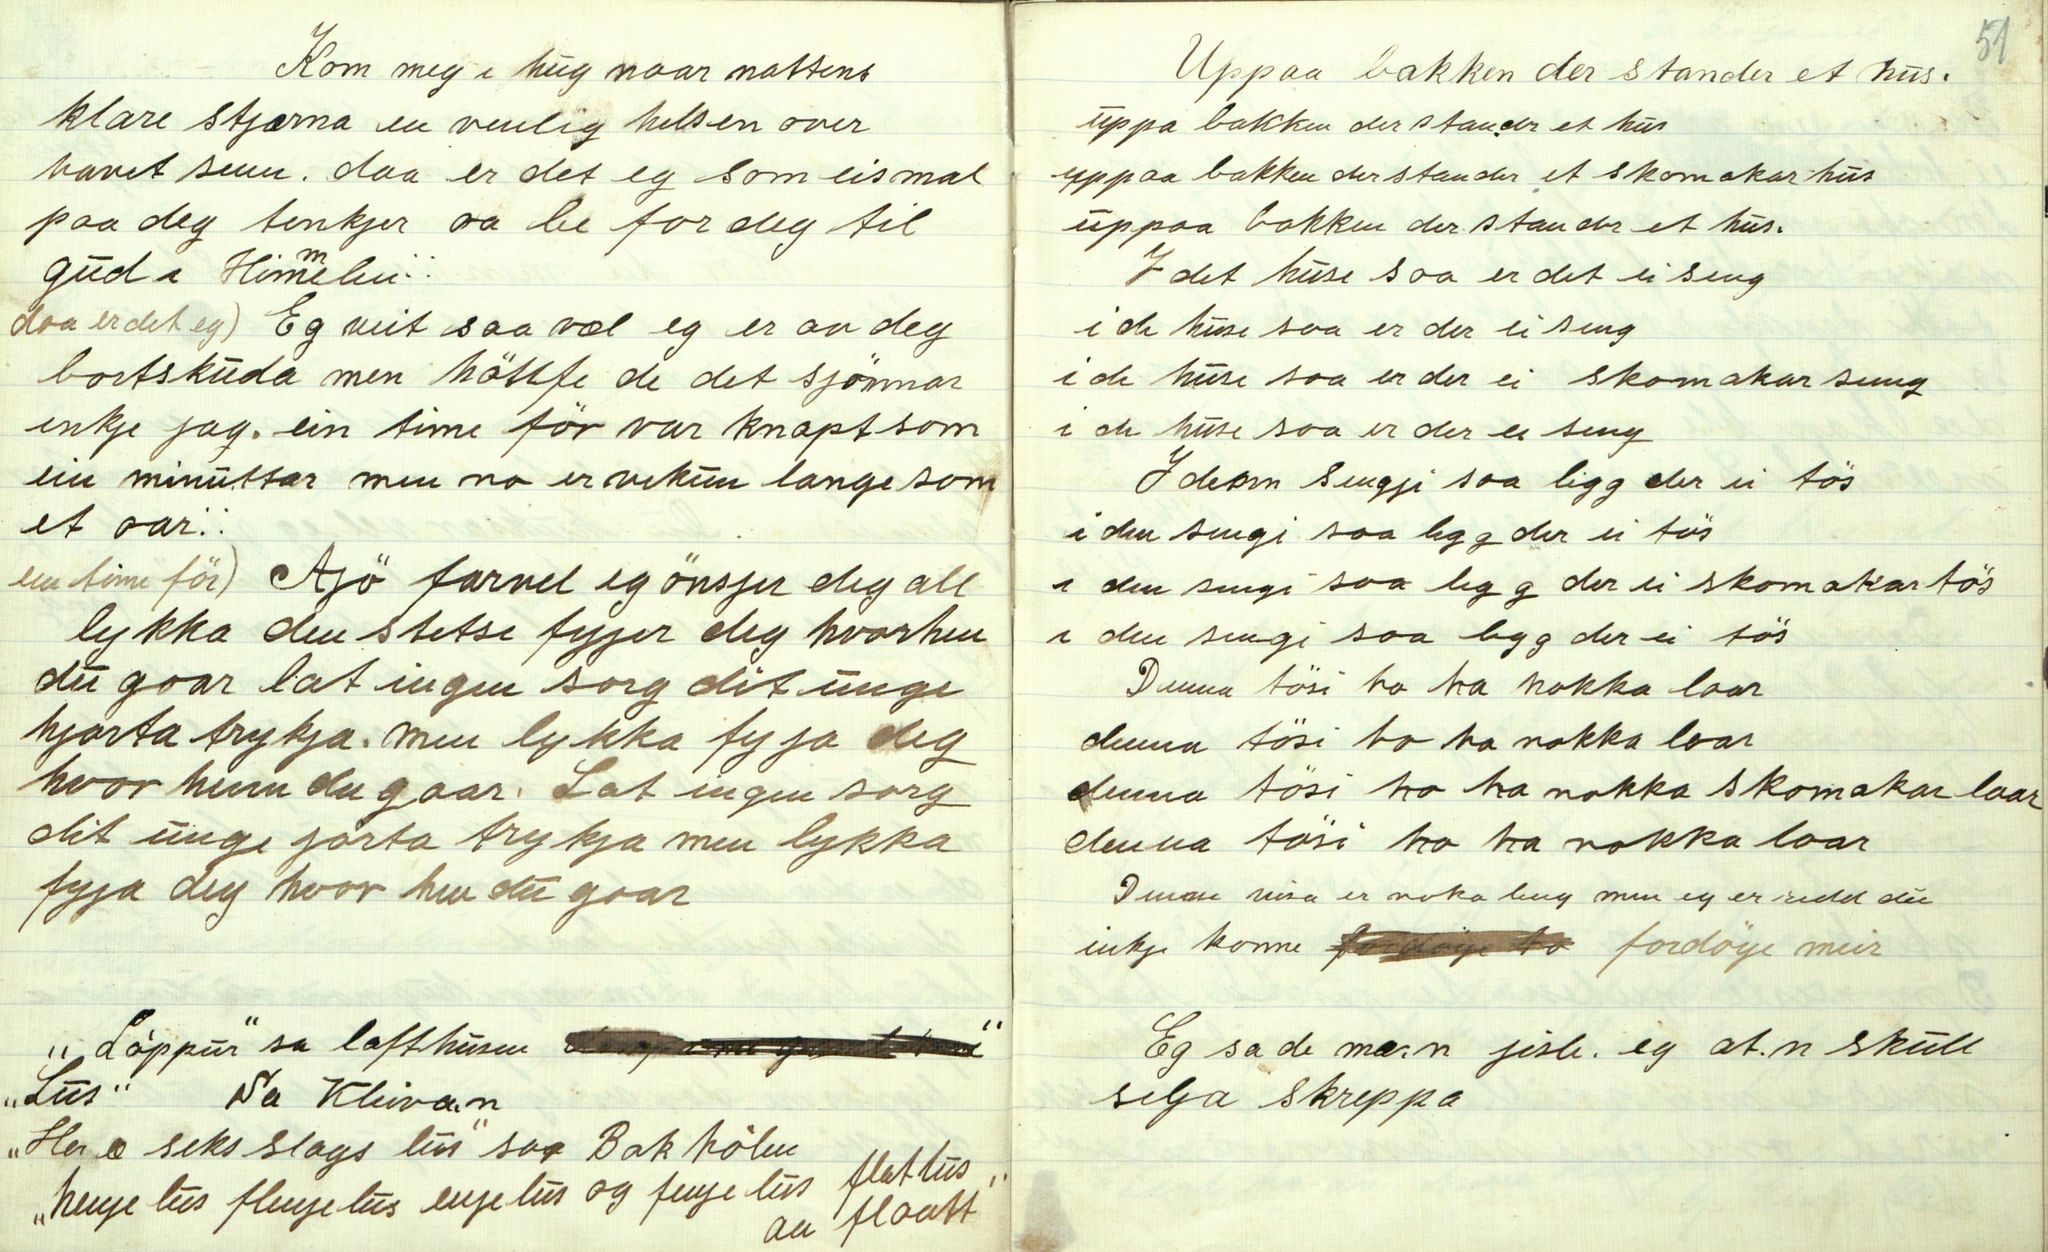 Kom meg i hug naar nattens
klare stjerna en venlig helsen over
havet senn. daa er det eg som eismal
paa deg tenkjer aa be for deg til
gud i Himmelen :
daa er det eg) Eg veit saa væl eg er av deg
bortskuda men höffe de det sjönnar
inkje jag. ein time för var knapt som
ein minuttar men no er vekun lange som
et aar :
ein time för) Ajö farvel eg önsjer deg all
lykka den stetse fyjer deg hvorhen
du gaar lat ingen sorg dit unge
hjarta trykja. men lykka fyja deg
hvor henn du gaar. Lat ingen sorg
dit unge jarta trykja men lykka
fyja deg hvor hen du gaar
„Löppur" sa lofthusen
„Lus" Sa Kleivan
„Her e seks slags lus" saa Bakhölen
„henjelus flenjelus enjelus og fenjelus flatlus
aa flaatt"
51
Uppaa bakken der stander et hus.
uppa bakken der stander et hus
uppaa bakken der stander et skomakar hus
uppaa bakken der stander et hus.
I det huse saa er det ei seng
i de huse saa er der ei seng
i de huse saa er der ei skomakar seng
i de huse saa er der ei seng
I denn sengji saa ligg der ei tös
i den sengi saa ligg der ei tös
i den sengi saa ligg der ei skomakar tös
i den sengi saa ligg der ei tös
Denna tösi ho ha nokka laar
denna tösi ho ha nokka laar
denna tösi ho ha nokka skomakar laar
denna tösi ho ha nokka laar
Denne visa er noka leng men eg er redd du
inkje konne fordöye meir
Eg sa de ma.n jisle. eg at.n skull
selja skreppa